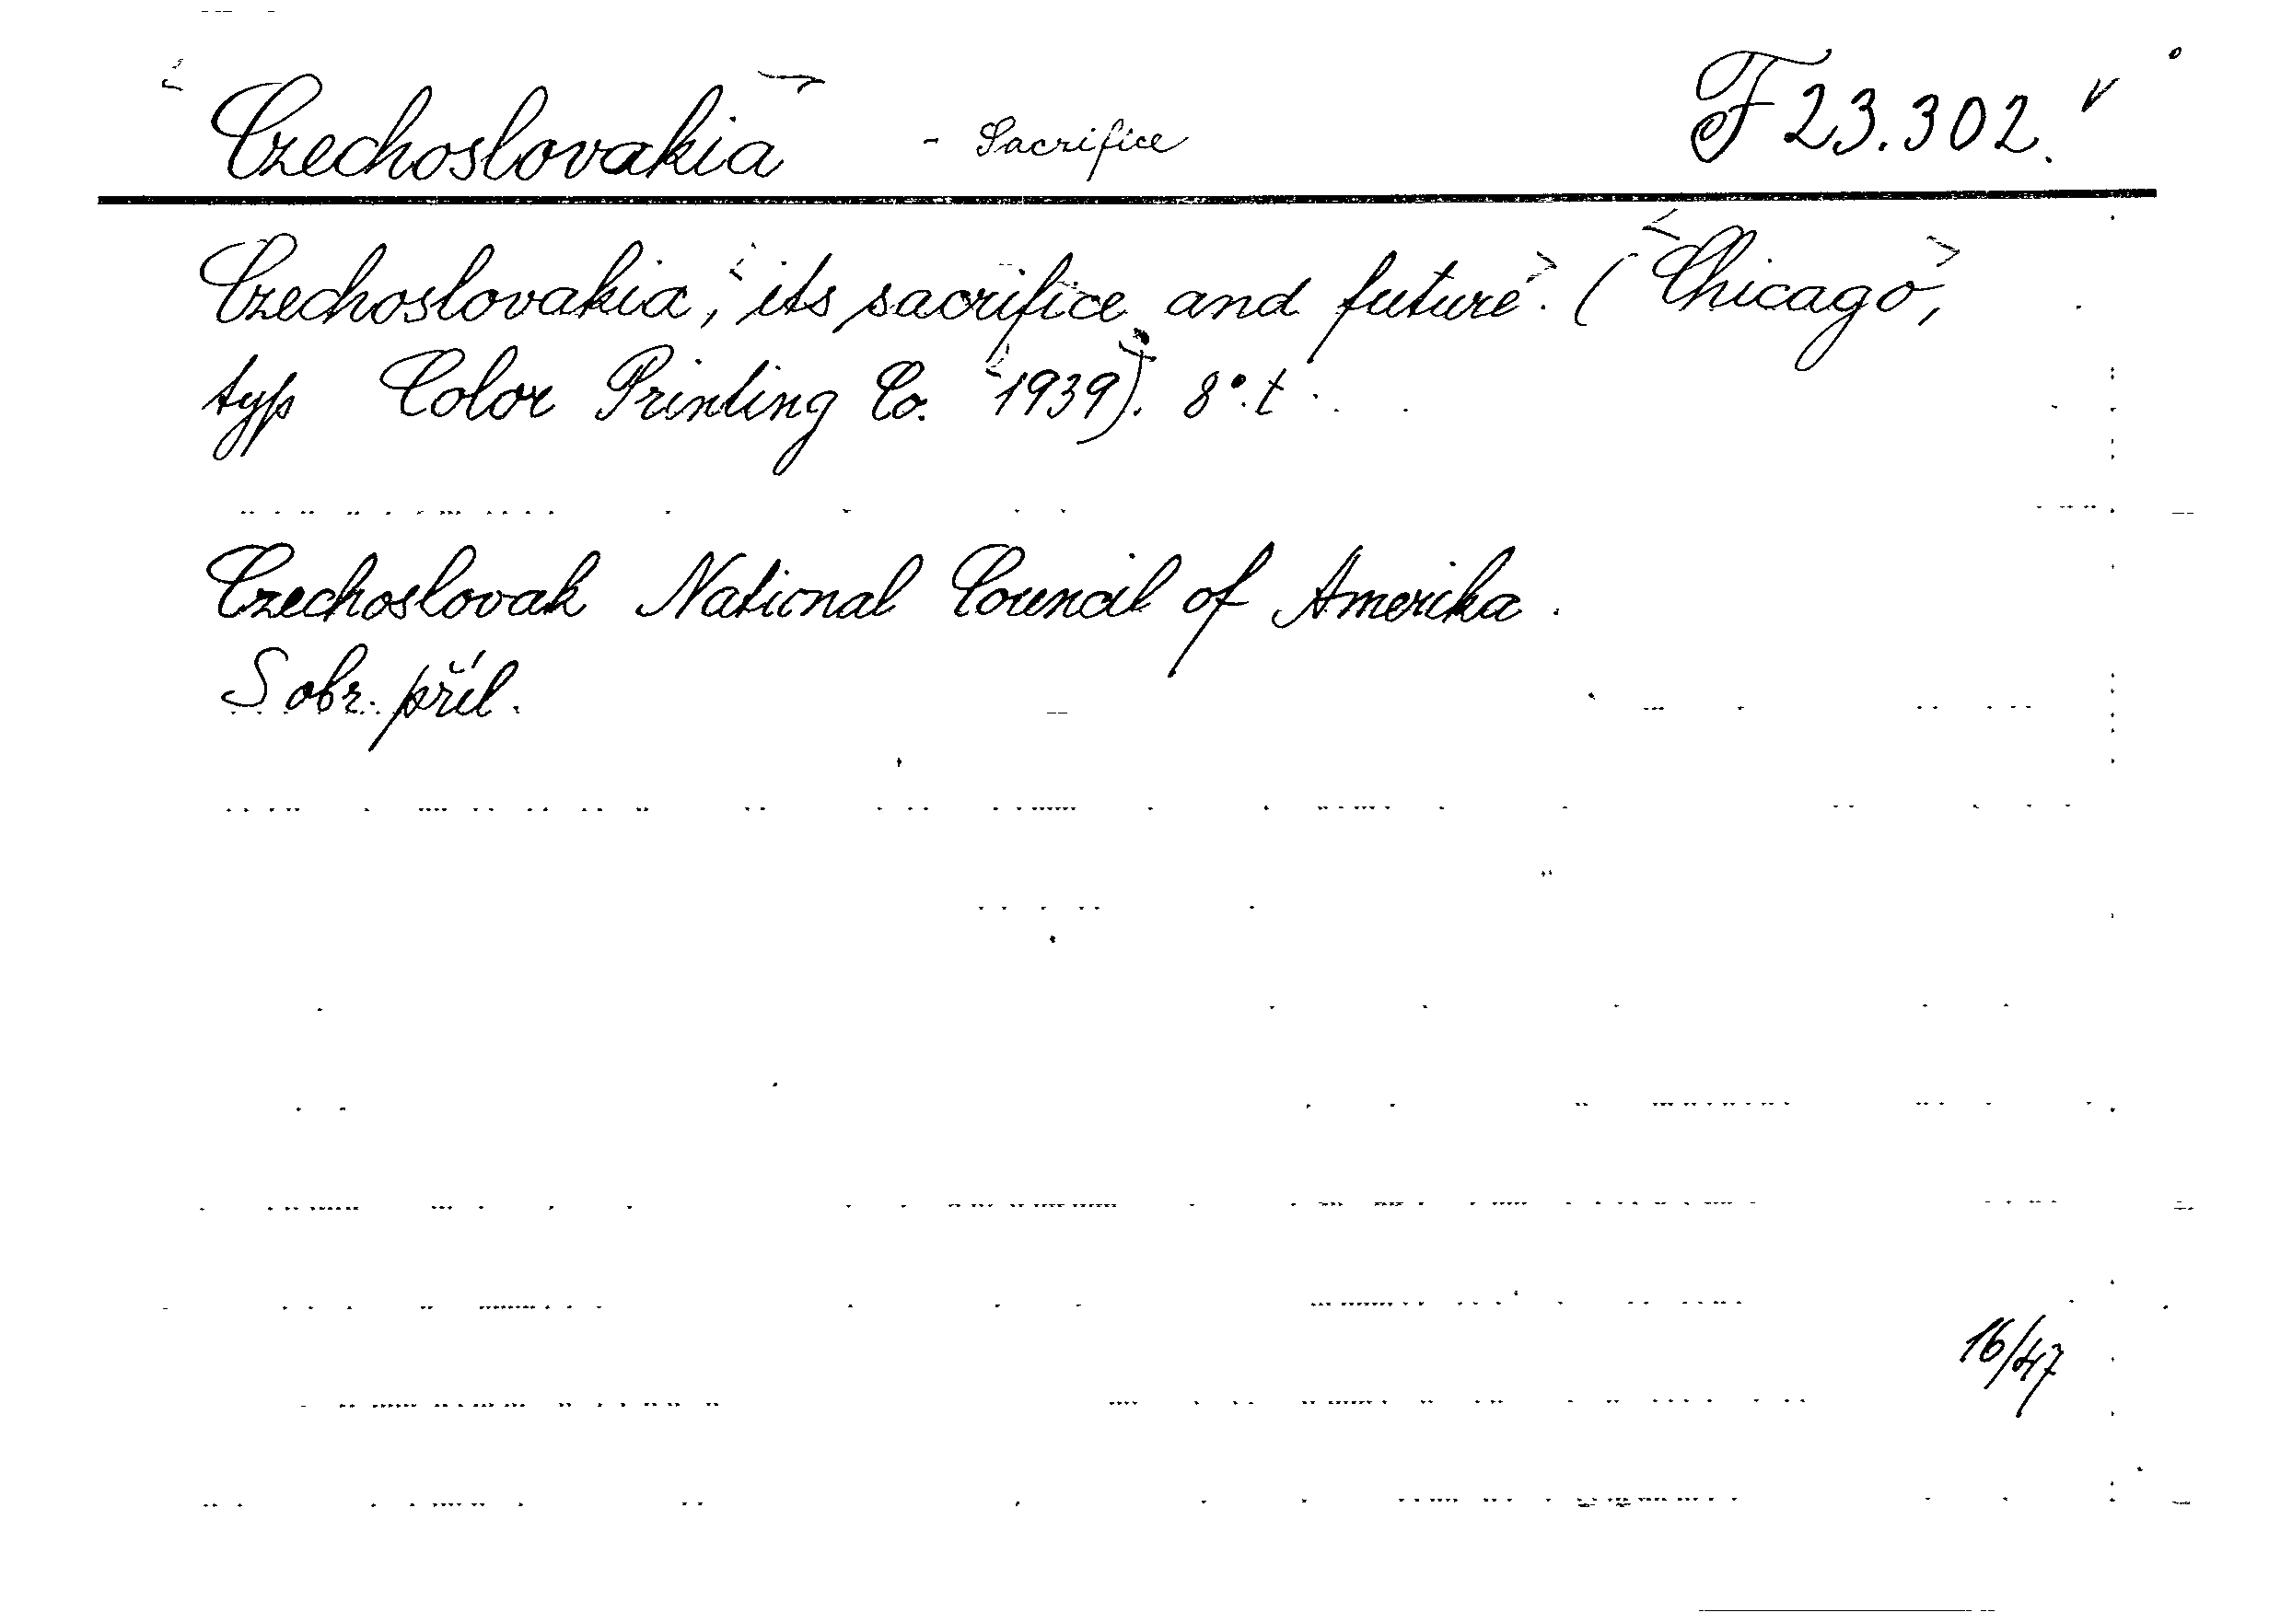 Czechoslovakia - Sacrifice F 23.302.
Czechoslovakia, its sacrifice and future. (Chicago,
typ Color Printing Co. 1939). 8°. t.
Czechoslovak National Council of Amerika.
S obr. příl.
16/47